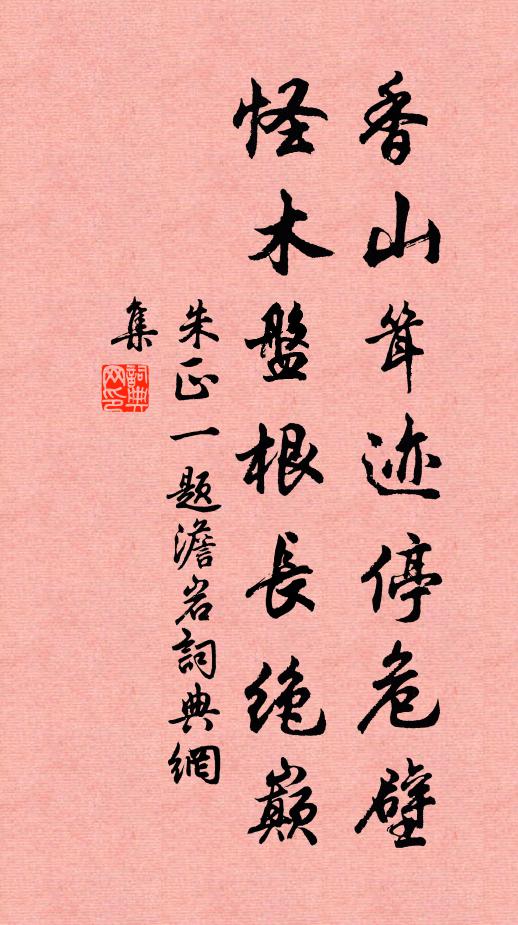 香山耸迹停危壁
怪木盤根長绝巅
朱正一题澹岩詞典網
集
詞典
网印